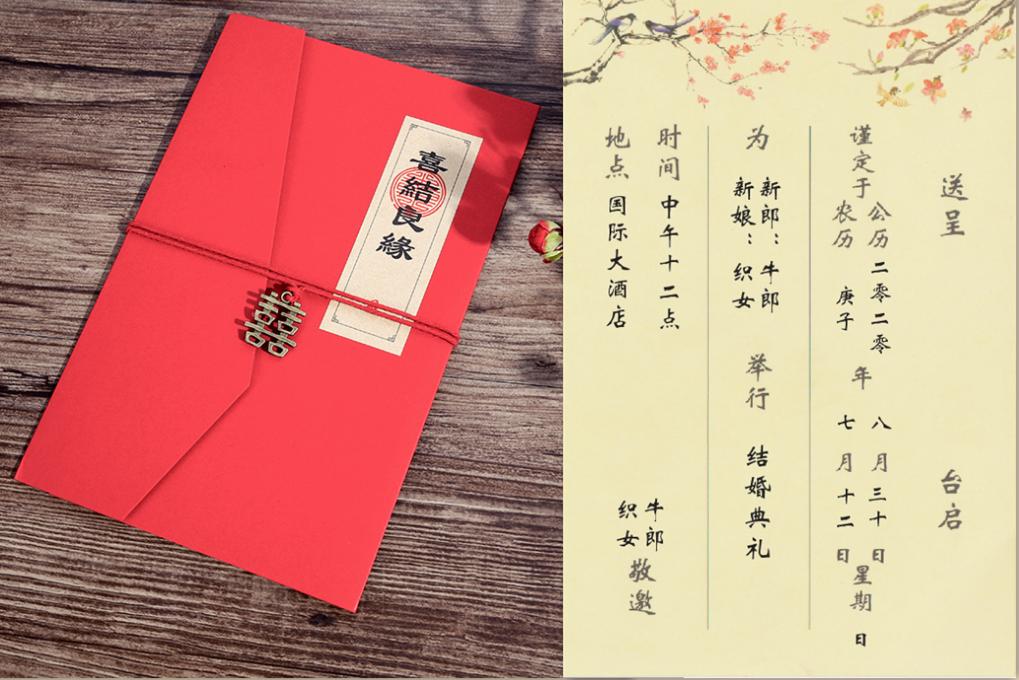 喜結良緣
囍
送呈
台启
谨定于
公历 二零二零 年 八月三十日 星期日
农历 庚子 七月十二日
为
新郎：牛郎
新娘：织女
举行
结婚典礼
时间 中午十二点
地点 国际大酒店
牛郎
织女
敬邀